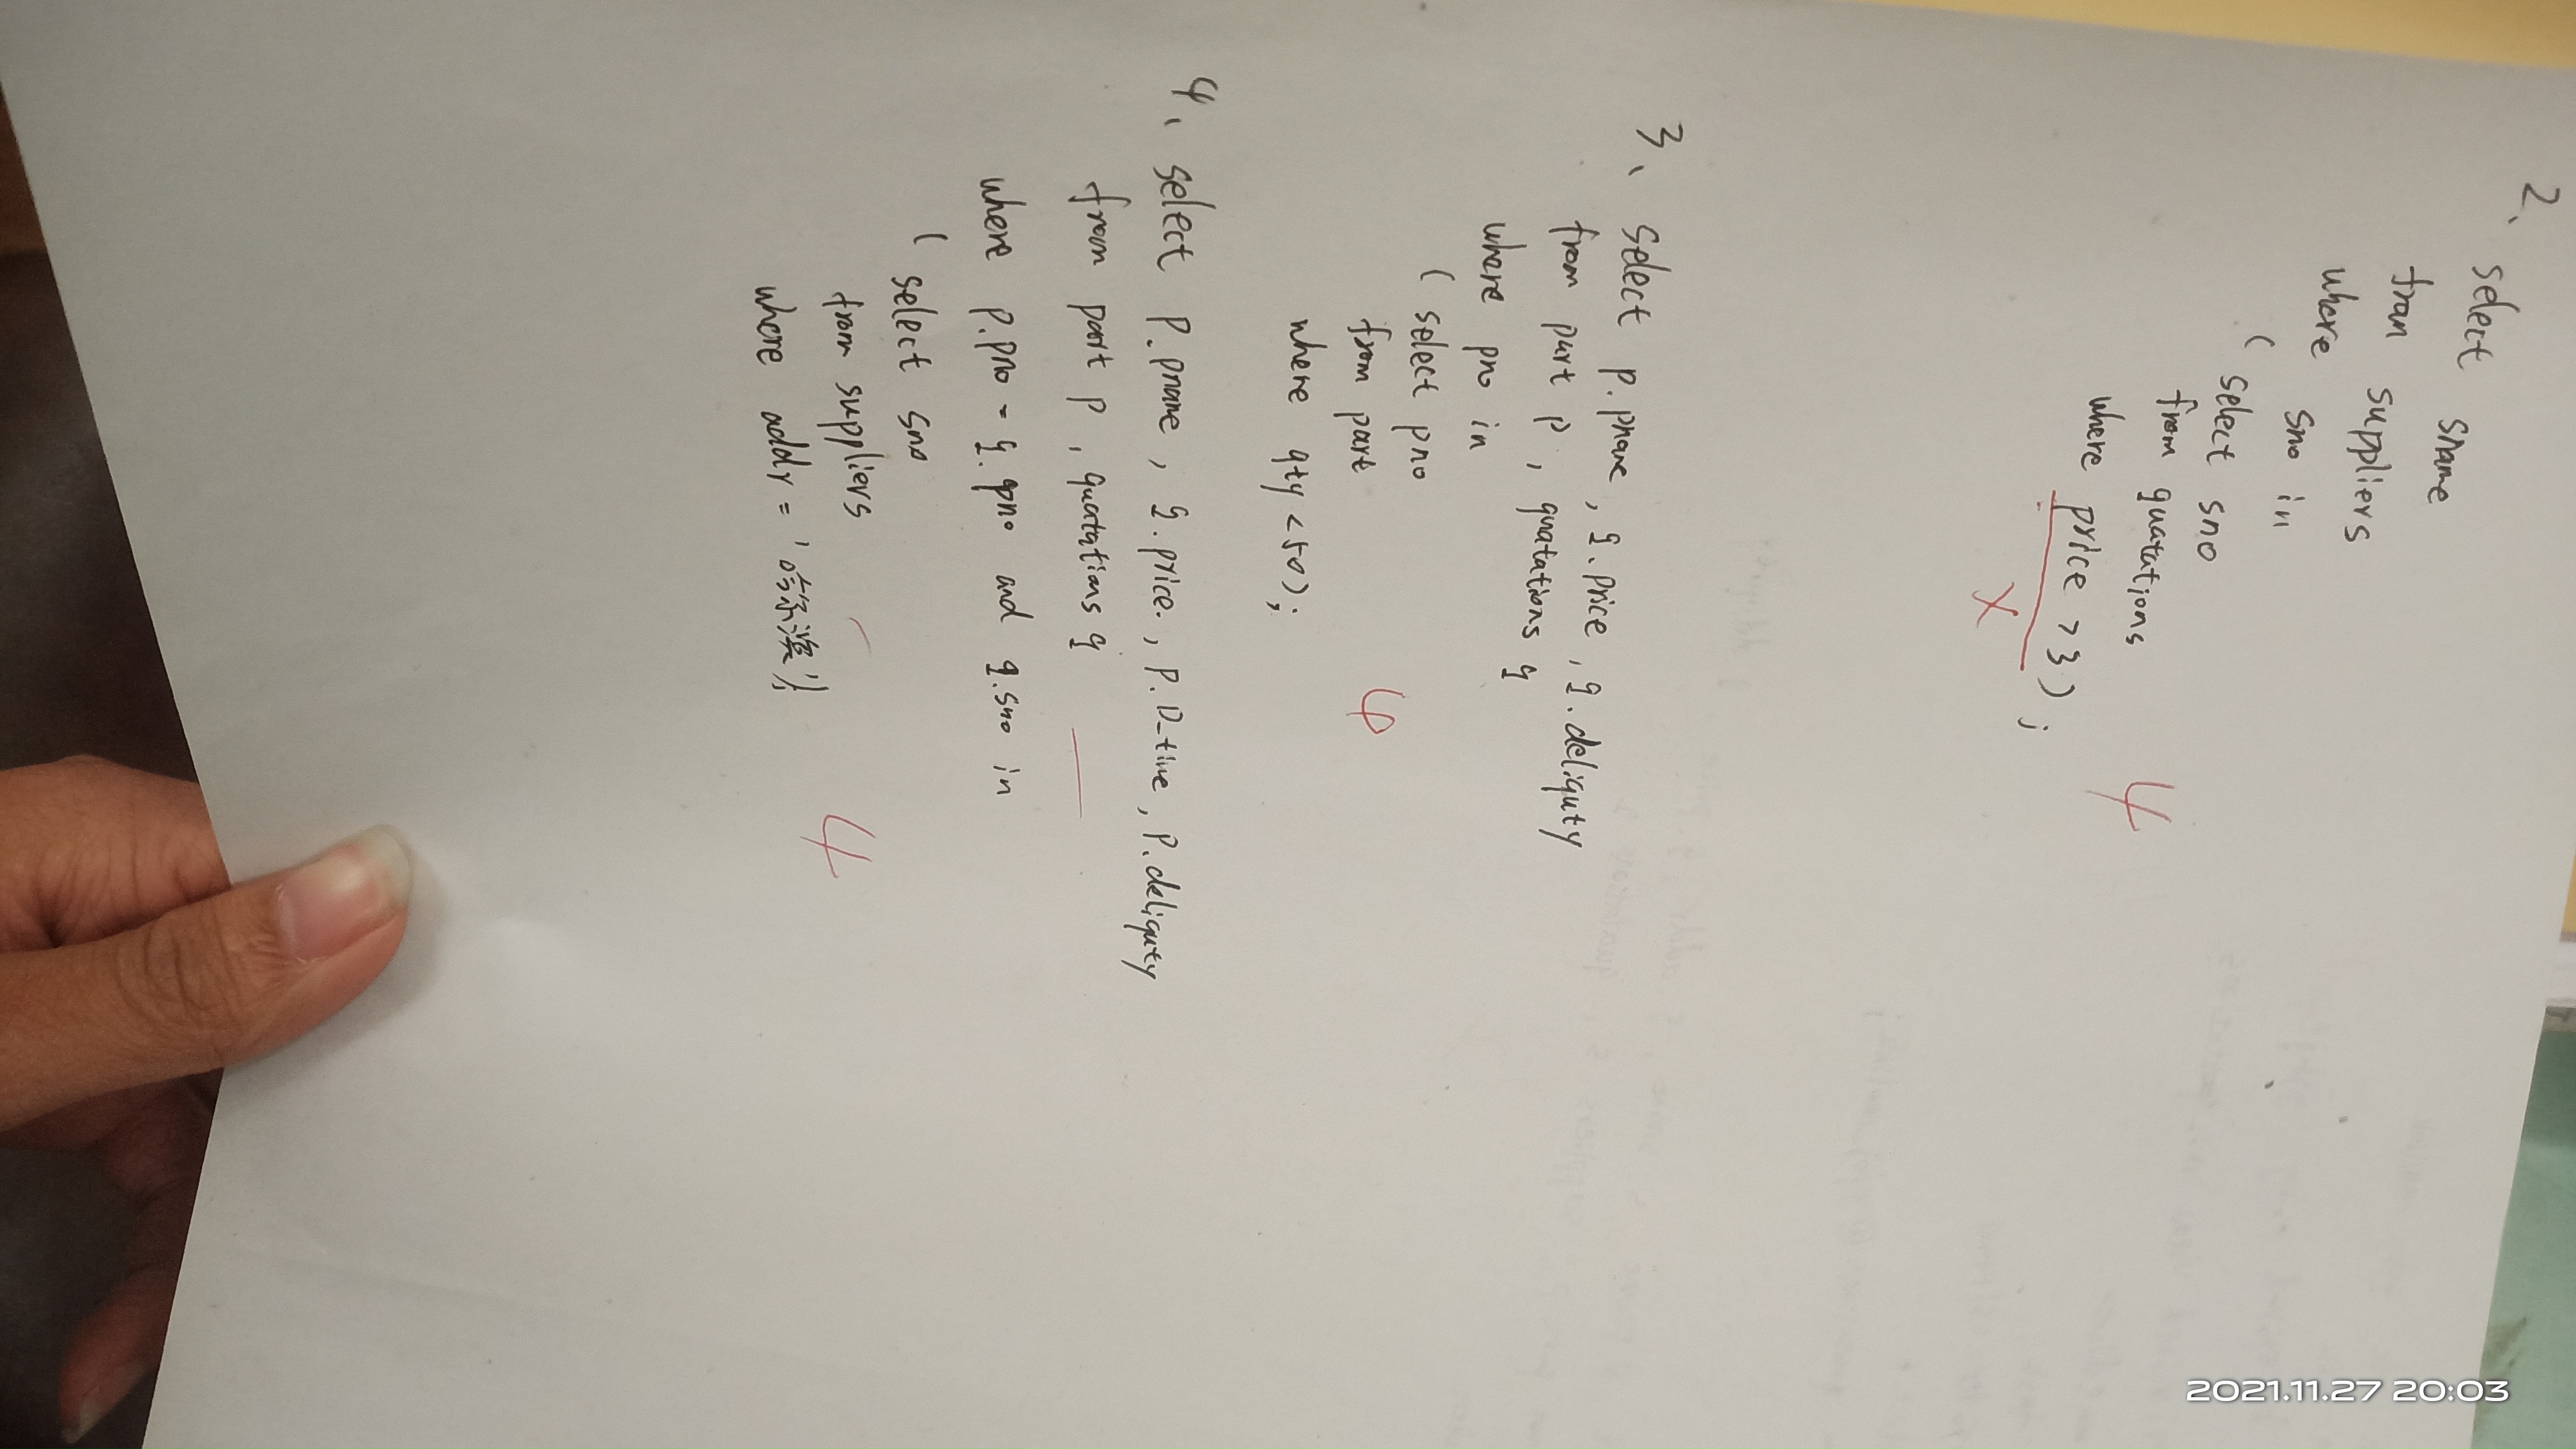 2、
select sname
fran suppliers
where sno in
( select sno
from quatations
where price >3) ;
4
X
3、 select p.pname , q.price , q.deliquty
from part p , quatations q
where pno in
( select pno
from part
where qty <50);
4
4、 select P.pname , q.price. , P.D-time , P.deliquty
from part p , quatations q
where p.pno = q.qpno and q.sno in
( select sno
from suppliers
where addr = '哈尔滨');
4
2021.11.27 20:03